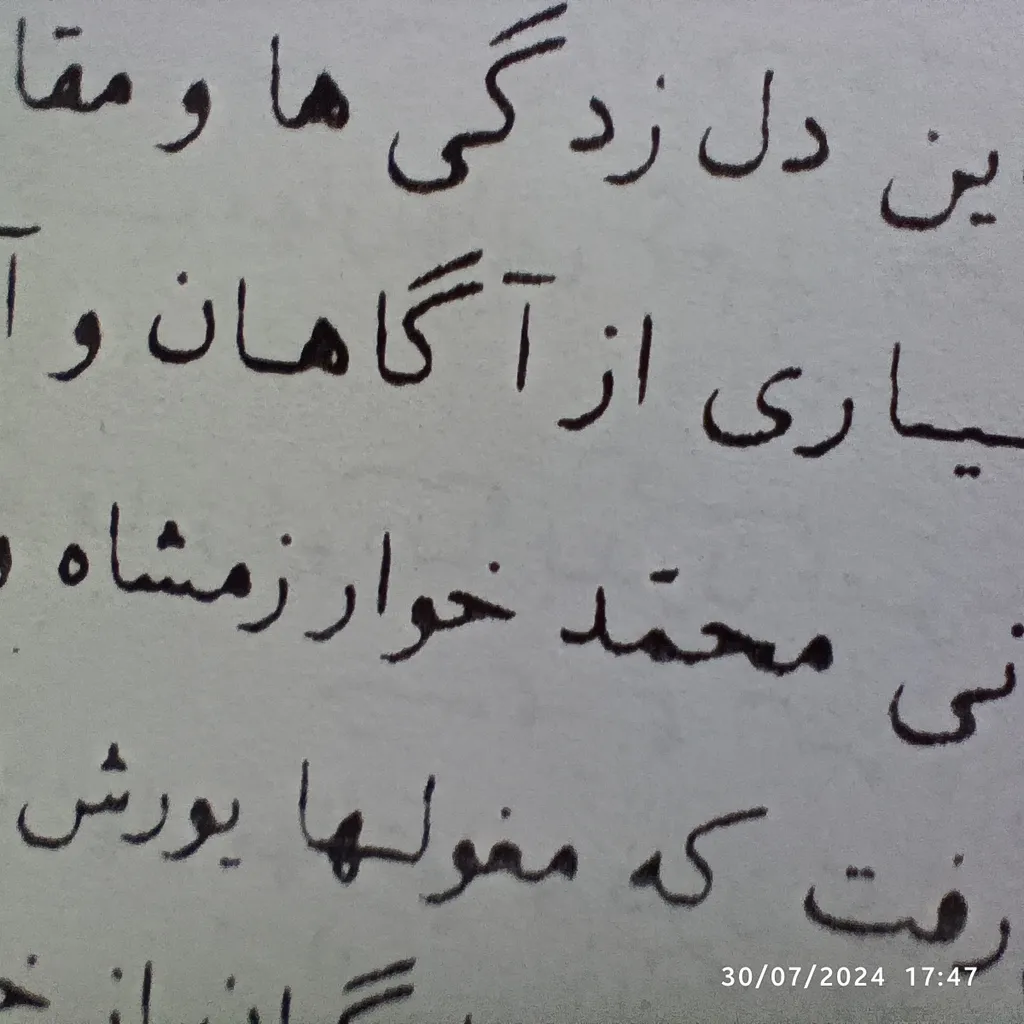 ین دل زدگی ها و مقا
سیاری از آگاهان و آ
نی محمّد خوارزمشاه
رفت که مغولها یورش
30/07/2024 17:47